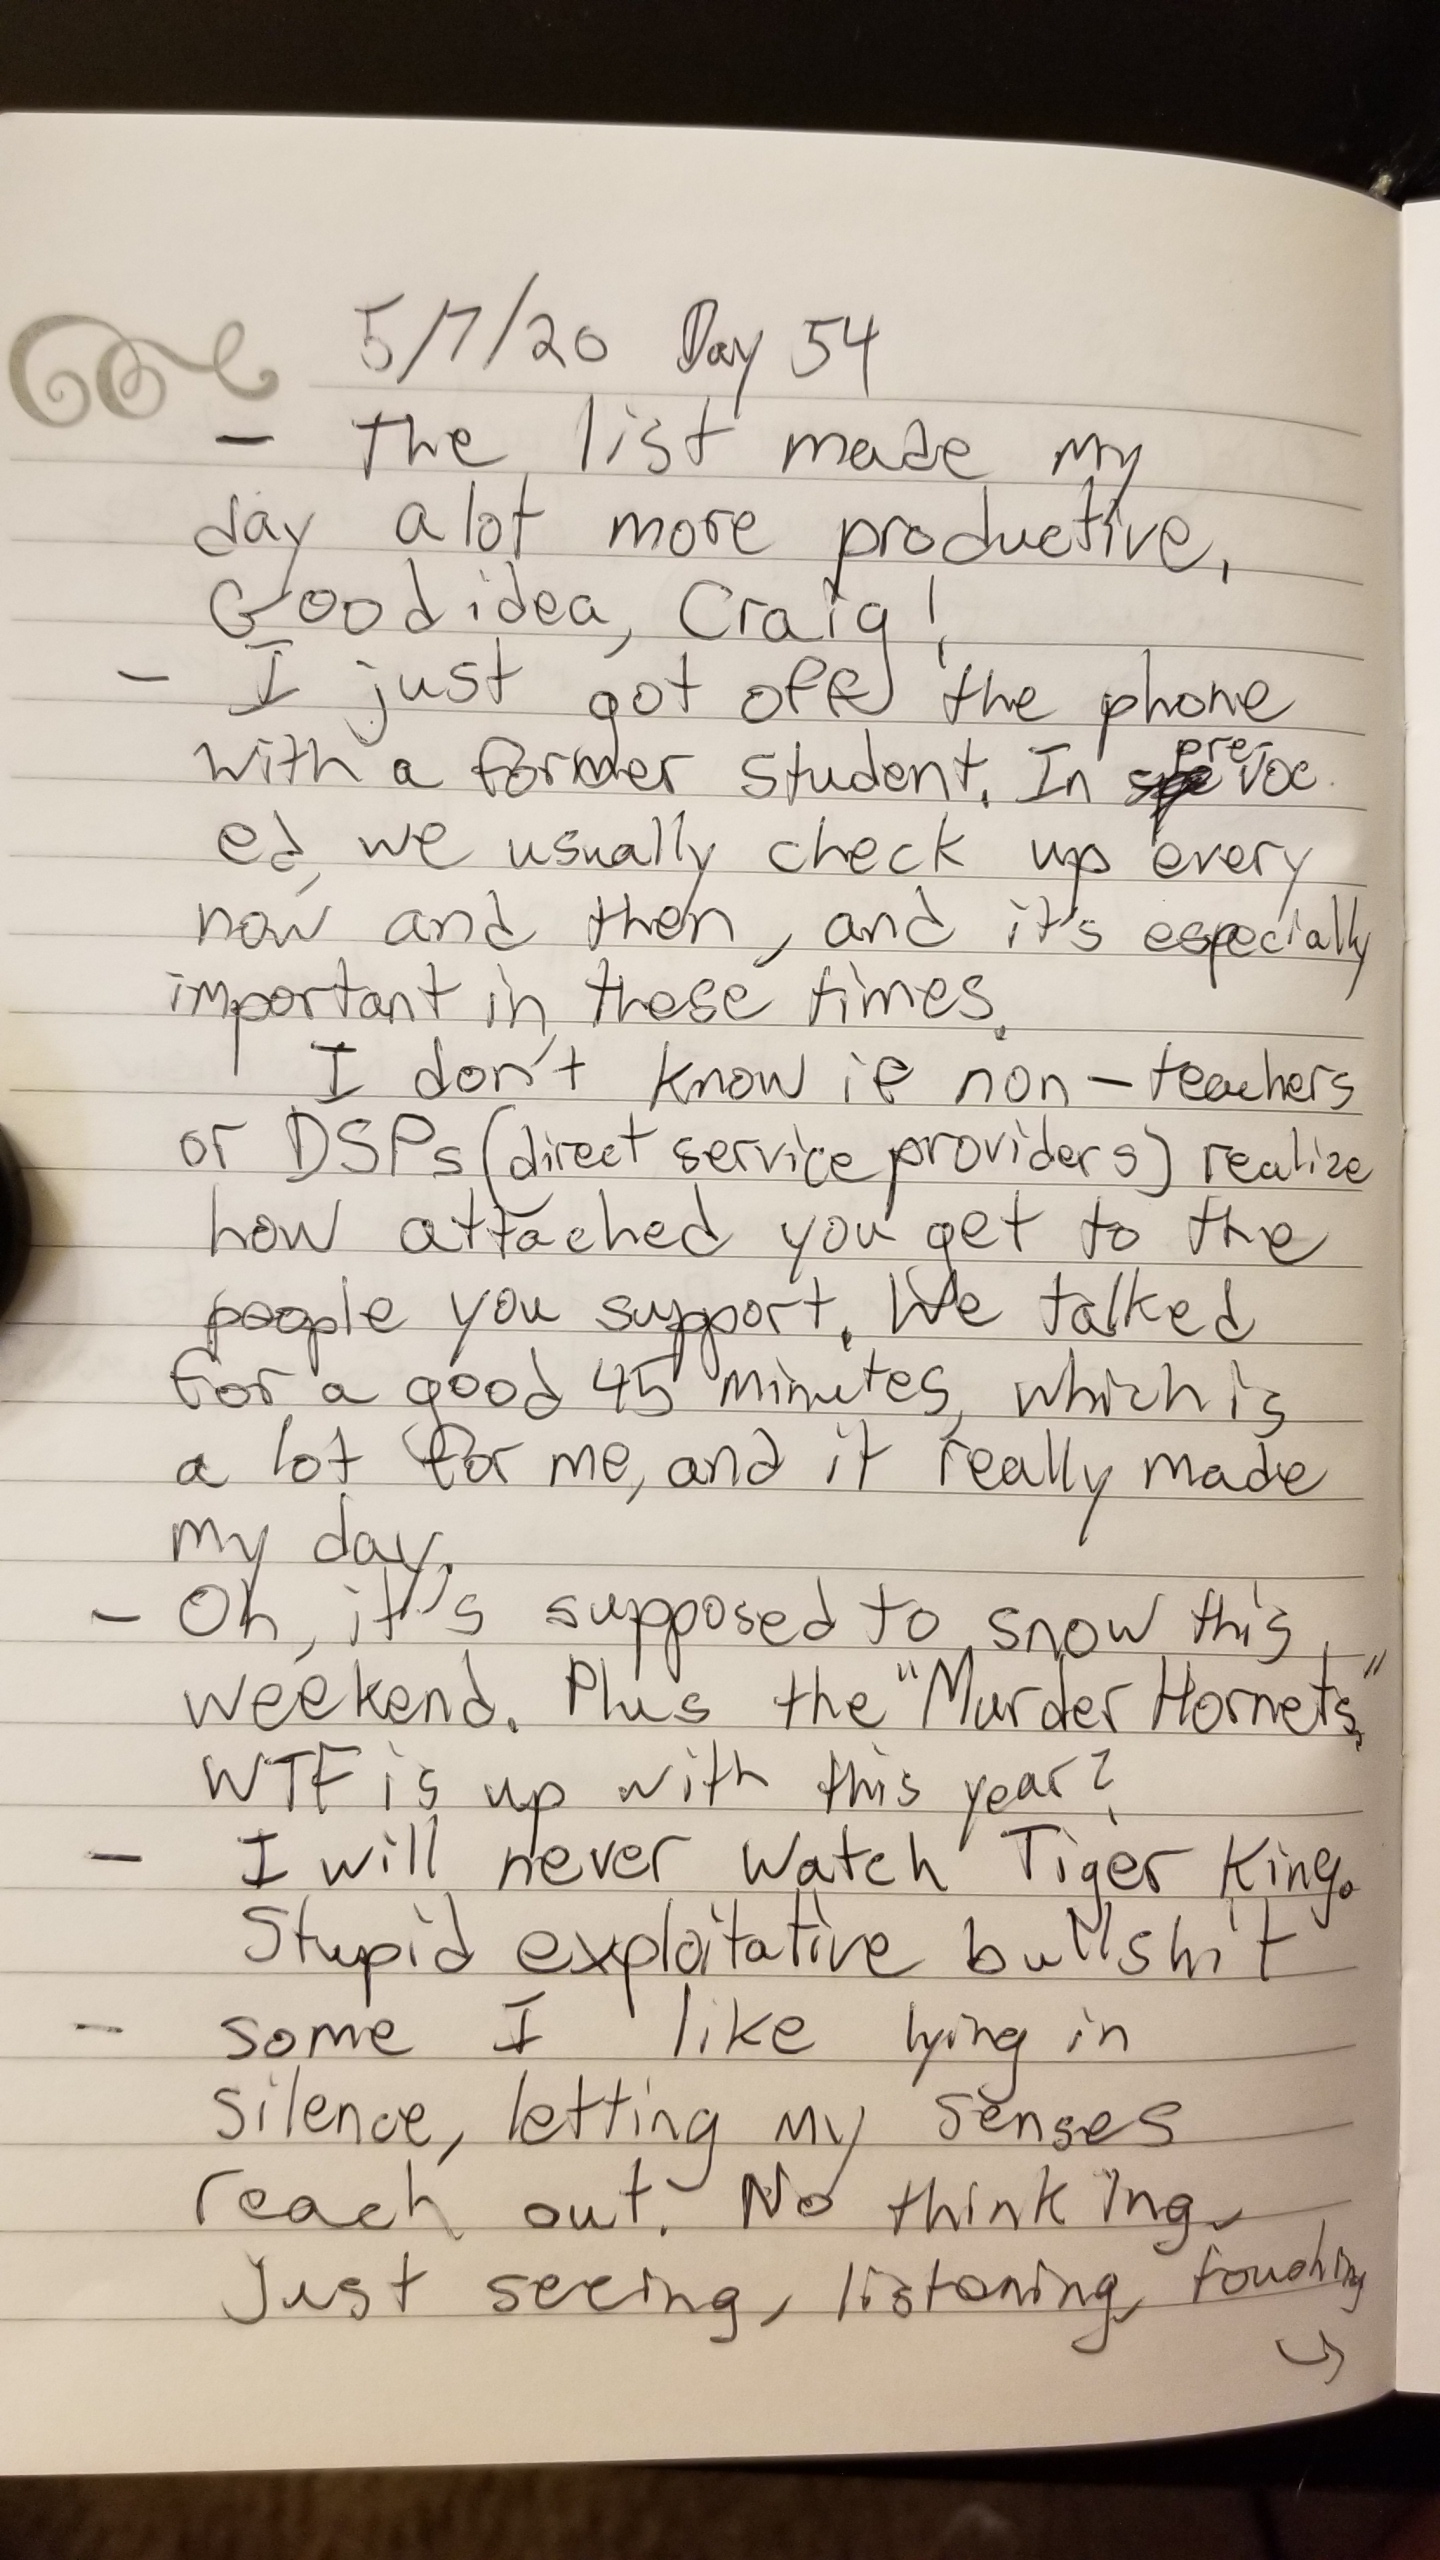 5/7/20 Day 54
- The list made my
day alot more productive.
Good idea, Craig!
- I just got off the phone
with a former student. In prevoc
ed, we usually check up every
now and then, and it's especially
important in these times.
I don't know if non-teachers
or DSPs (direct service providers) realize
how attached you get to the
people you support. We talked
for a good 45 minutes, which is
a lot for me, and it really made
my day.
- Oh, it's supposed to snow this
weekend. Plus the "Murder Hornets."
WTF is up with this year?
- I will never watch Tiger King.
Stupid exploitative bullshit
- some I like lying in
silence, letting my senses
reach out. No thinking,
Just seeing, listening, touching
→